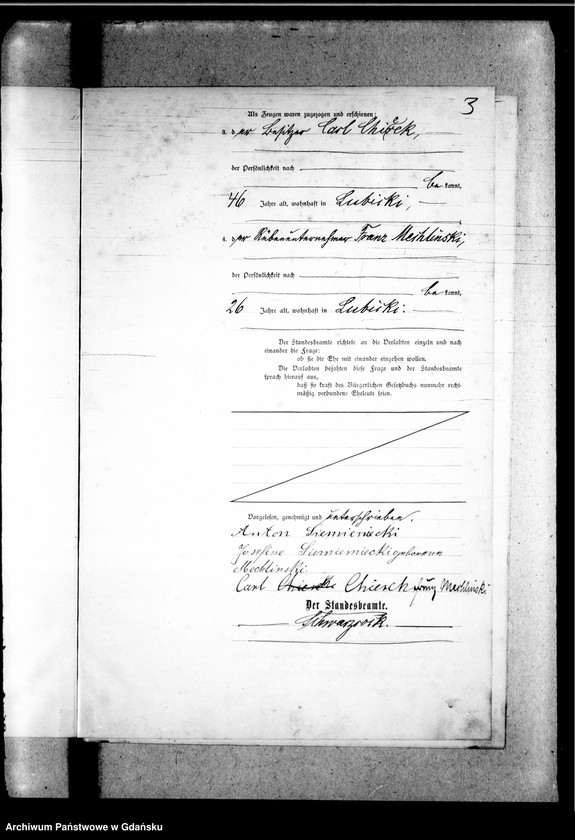 3
Als Zeugen waren zugezogen und erschienen:
der Besitzer Carl Chierck,
der Persönlichkeit nach
be kannt,
46 Jahre alt, wohnhaft in Lubicki,
4. der Rübenunternehmer Franz Mechlinski,
der Persönlichkeit nach
be kannt,
26 Jahre alt, wohnhaft in Lubicki.
Der Standesbeamte richtete an die Verlobten einzeln und nach
einander die Frage:
ob sie die Ehe mit einander eingehen wollen.
Die Verlobten bejahten diese Frage und der Standesbeamte
sprach hierauf aus,
daß sie kraft des Bürgerlichen Gesetzbuchs nunmehr recht-
mäßig verbundene Eheleute seien.
Vorgelesen, genehmigt und unterschrieben.
Anton Siemieniecki
Josefine Siemieniecki geborene
Mechlinski
Carl Chierck Franz Mechlinski
Der Standesbeamte.
Schwarzrock.
Archiwum Państwowe w Gdańsku